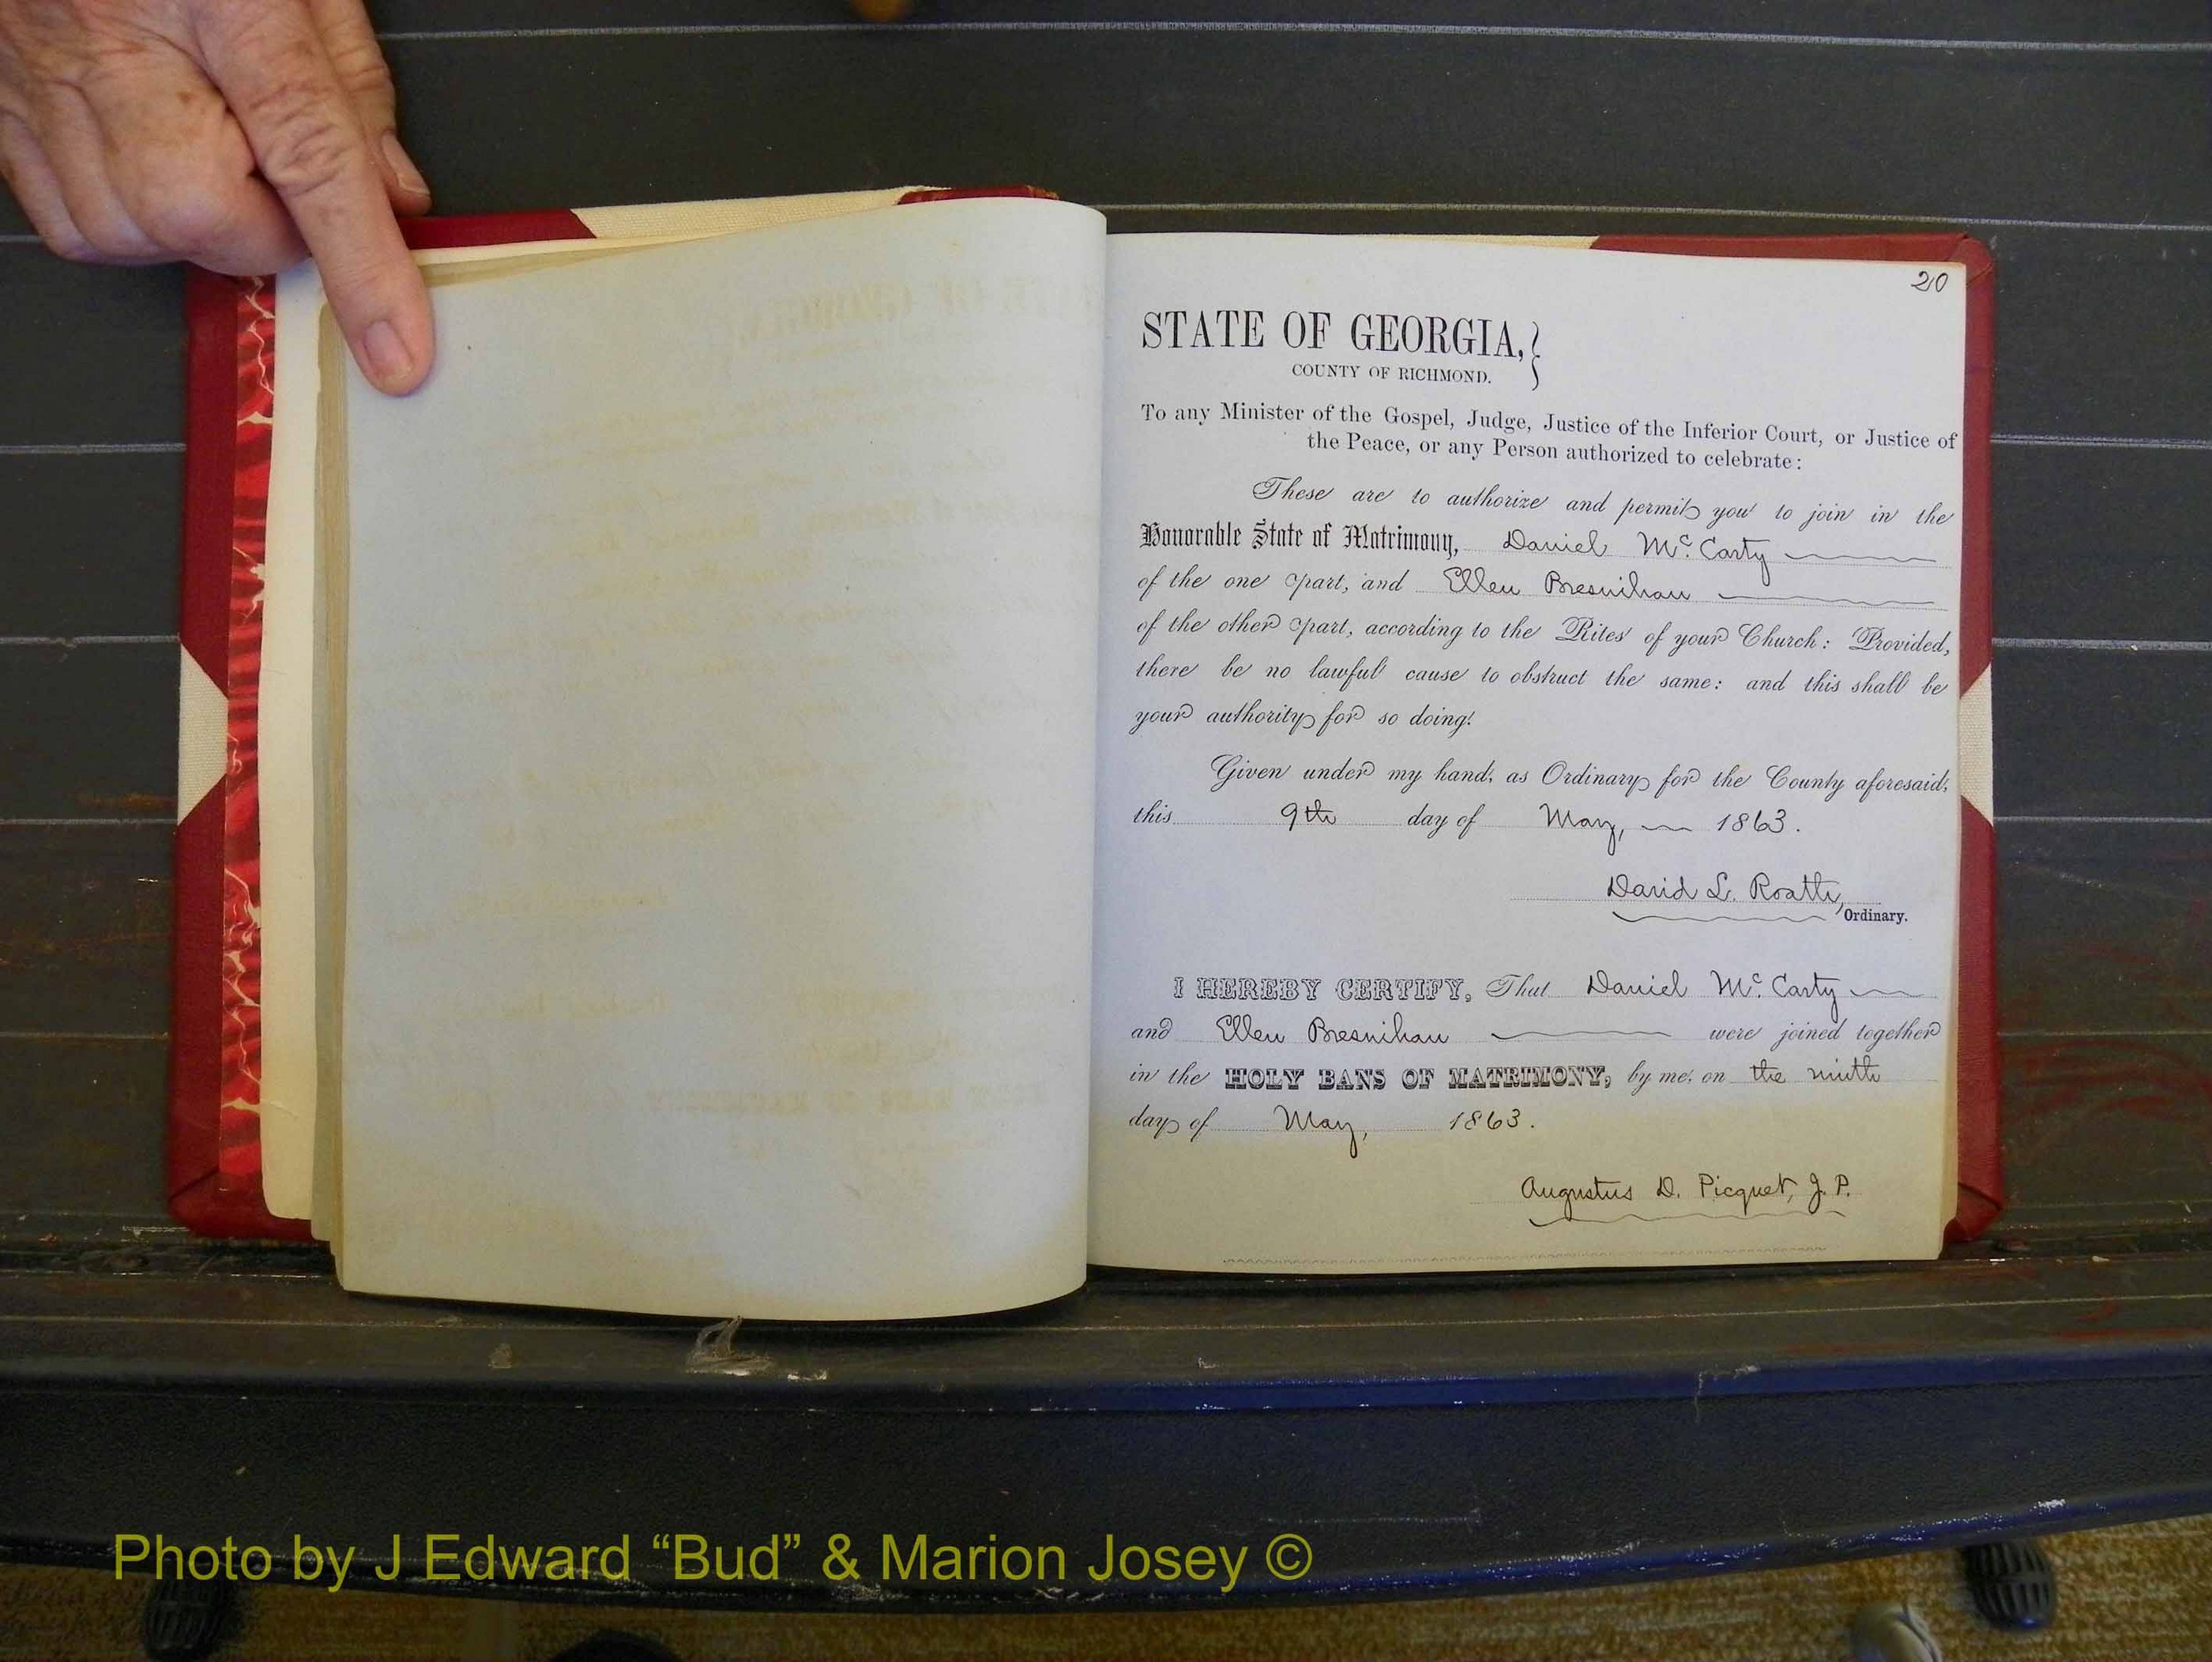 20
STATE OF GEORGIA,
COUNTY OF RICHMOND.
To any Minister of the Gospel, Judge, Justice of the Inferior Court, or Justice of
the Peace, or any Person authorized to celebrate:
These are to authorize and permit you to join in the
Honorable State of Matrimony, Daniel Mc. Carty
of the one part, and Ellen Bresnihan
of the other part, according to the Rites of your Church: Provided,
there be no lawful cause to obstruct the same: and this shall be
your authority for so doing.
Given under my hand, as Ordinary for the County aforesaid,
this 9th day of May, 1863.
David L. Roath,
Ordinary.
I HEREBY CERTIFY, That Daniel Mc. Carty
and Ellen Bresnihan were joined together
in the HOLY BANS OF MATRIMONY, by me, on the ninth
day of May, 1863.
Augustus D. Picquet, J. P.
Photo by J Edward “Bud” & Marion Josey ©